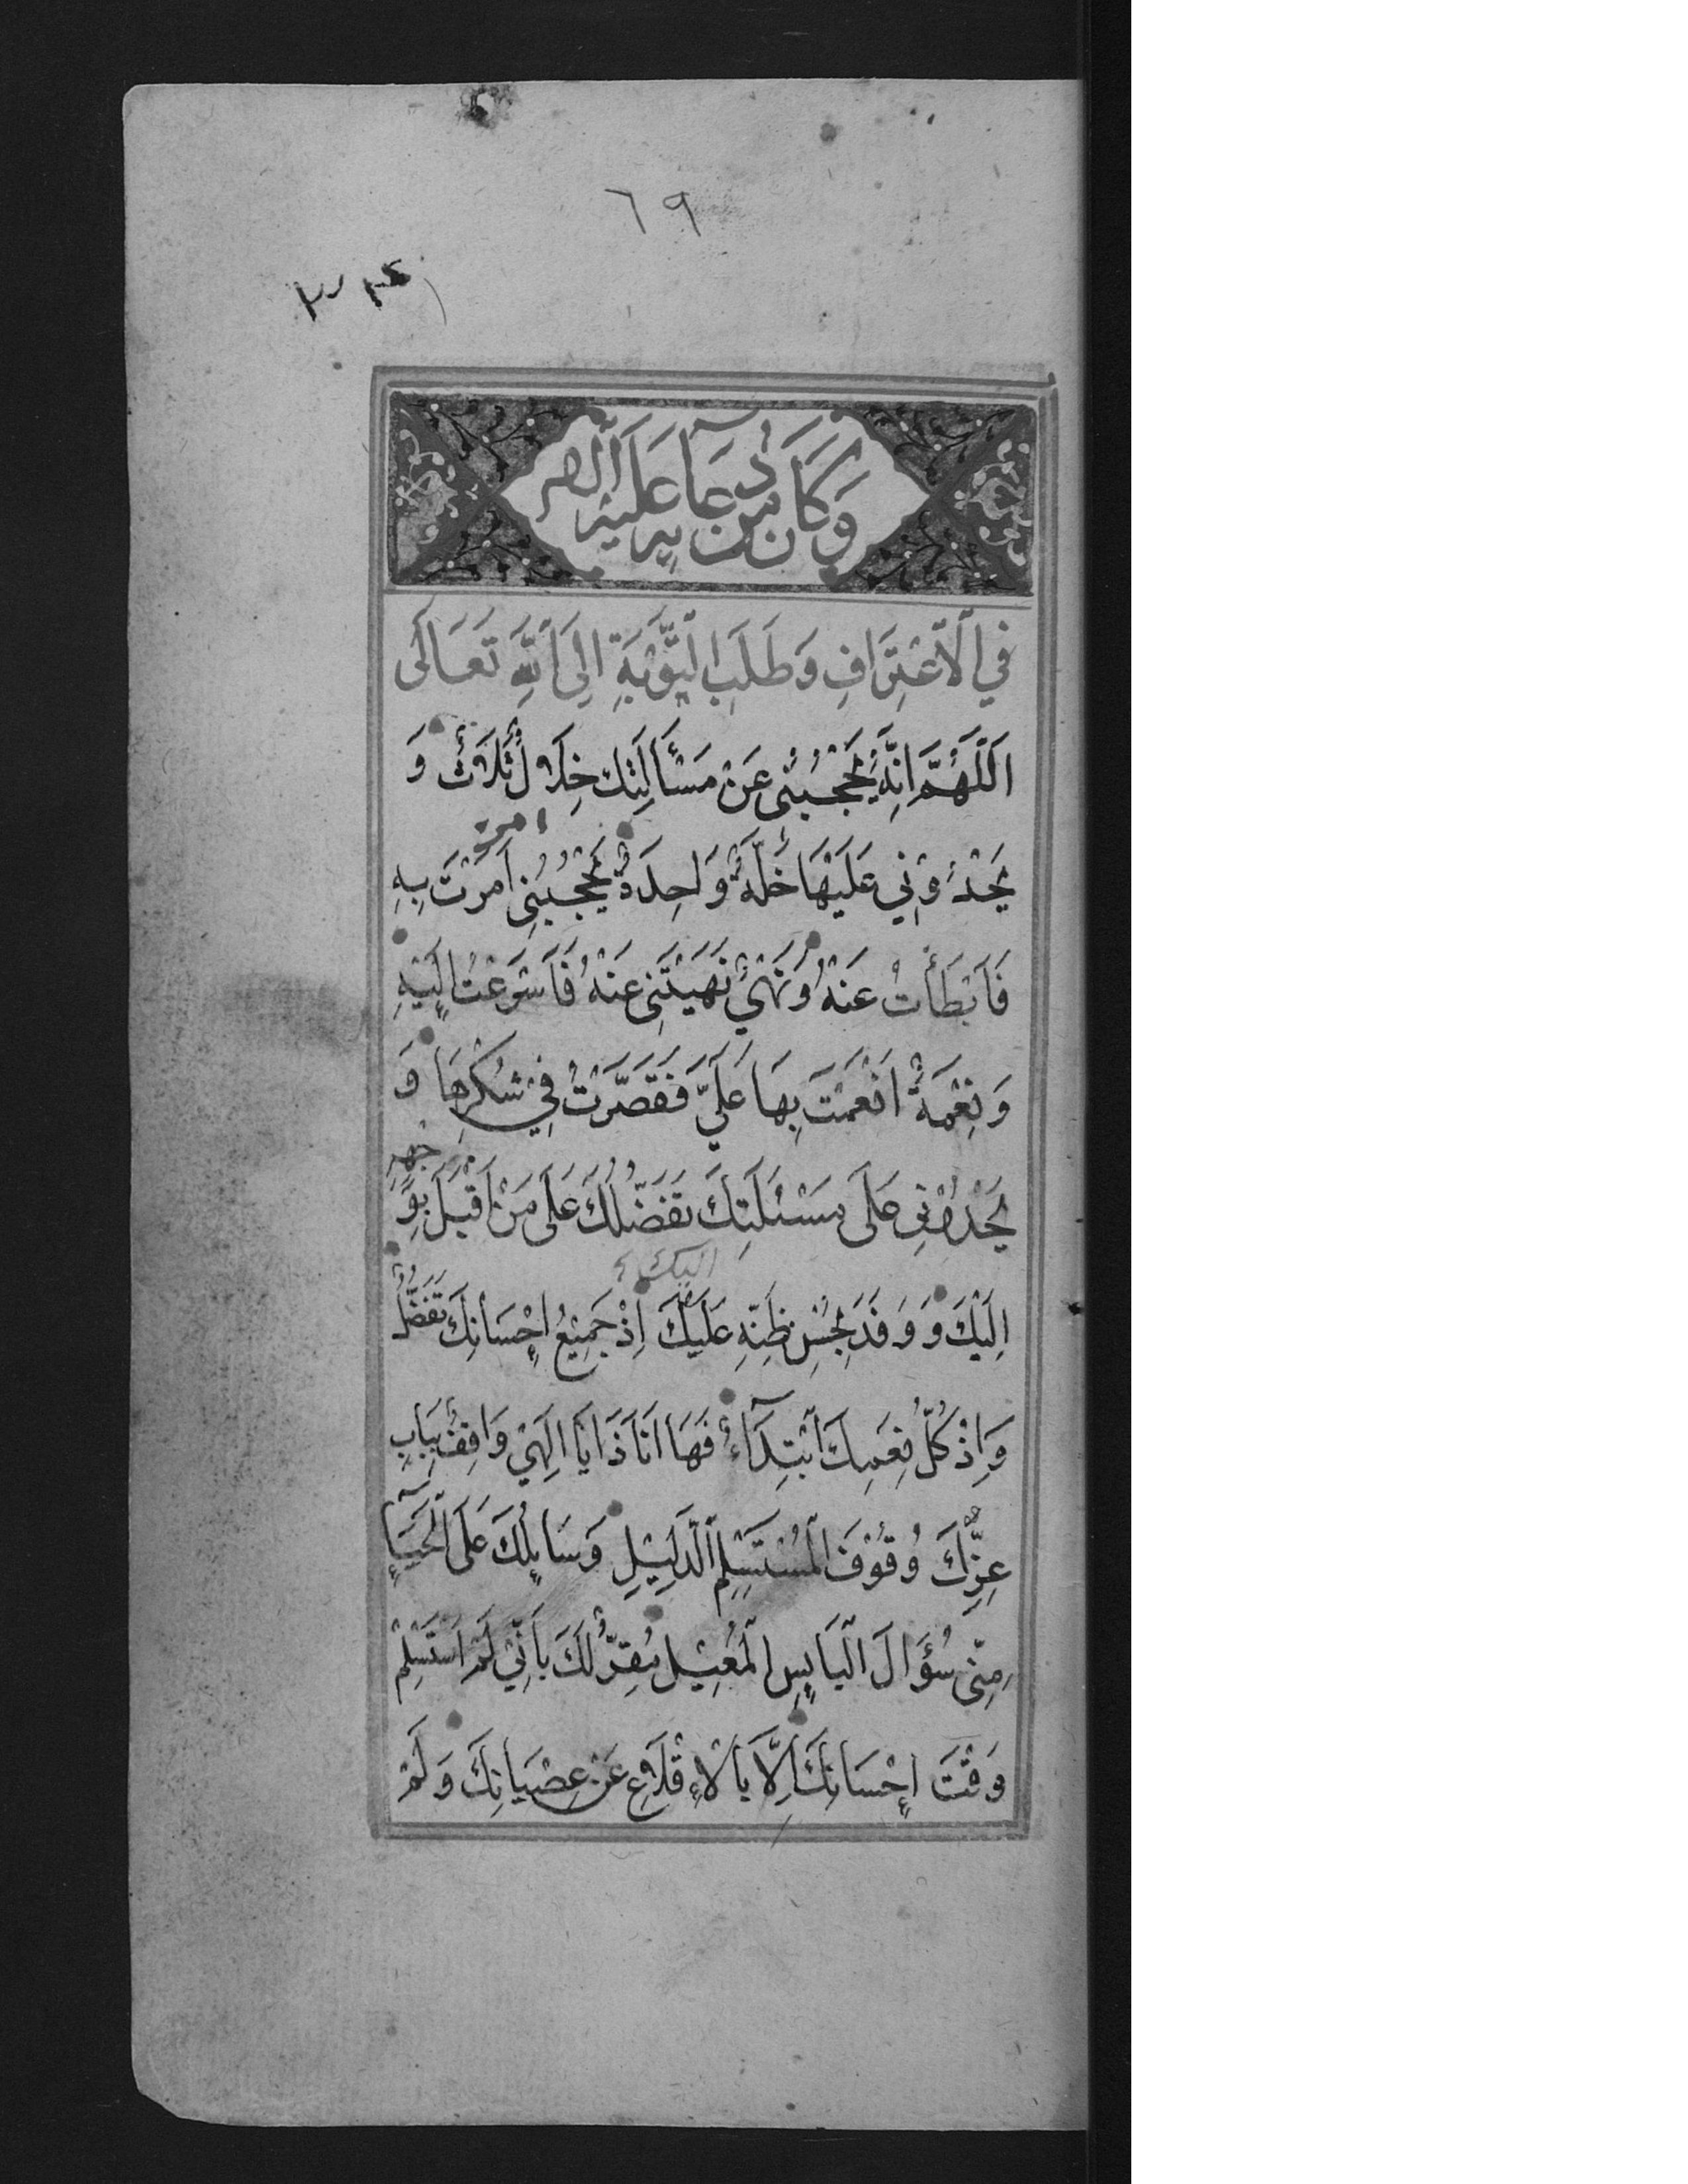 ٦٩
وَكَانَ مِنْ دُعَآئِهِ عَلَيْهِ السَّلَام
فِي الْاِعْتِرَافِ وَطَلَبِ التَّوْبَةِ اِلَى اللّٰهِ تَعَالٰى
اَللّٰهُمَّ اِنَّهُ يَحْجُبُنِى عَنْ مَسْأَلَتِكَ خِلَالٌ ثَلَاثٌ وَ
يَحْدُوْنِي عَلَيْهَا خَلَّةٌ وَاحِدَةٌ يَحْجُبُنِى اَمَرْتَ بِهِ
امر
فَاَبْطَأْتُ عَنْهُ وَنَهْيٌ نَهَيْتَنِى عَنْهُ فَاَسْرَعْتُ اِلَيْهِ
وَنِعْمَةٌ اَنْعَمْتَ بِهَا عَلَيَّ فَقَصَّرْتُ فِيْ شُكْرِهَا وَ
يَحْدُوْنِى عَلَى مَسْئَلَتِكَ تَفَضُّلُكَ عَلَى مَنْ اَقْبَلَ بِوَجْهِهِ
اليك
اِلَيْكَ وَ وَفَدَ بِحُسْنِ ظَنِّهِ عَلَيْكَ اِذْ جَمِيْعُ اِحْسَانِكَ تَفَضُّلٌ
وَاِذْ كُلُّ نِعَمِكَ ابْتِدَآءٌ فَهَا اَنَا ذَا يَا اِلَهِيْ وَاقِفٌ بِبَابِ
عِزِّكَ وُقُوْفَ الْمُسْتَسْلِمِ الذَّلِيْلِ وَسَائِلُكَ عَلَى الْحَيَآءِ
مِنِّى سُؤَالَ الْبَايِسِ الْمُعِيْلِ مُقِرٌّ لَكَ بِاَنِّيْ لَمْ اَسْتَسْلِمْ
وَقْتَ اِحْسَانِكَ اِلَّا بِالْاِقْلَاعِ عَنْ عِصْيَانِكَ وَلَمْ